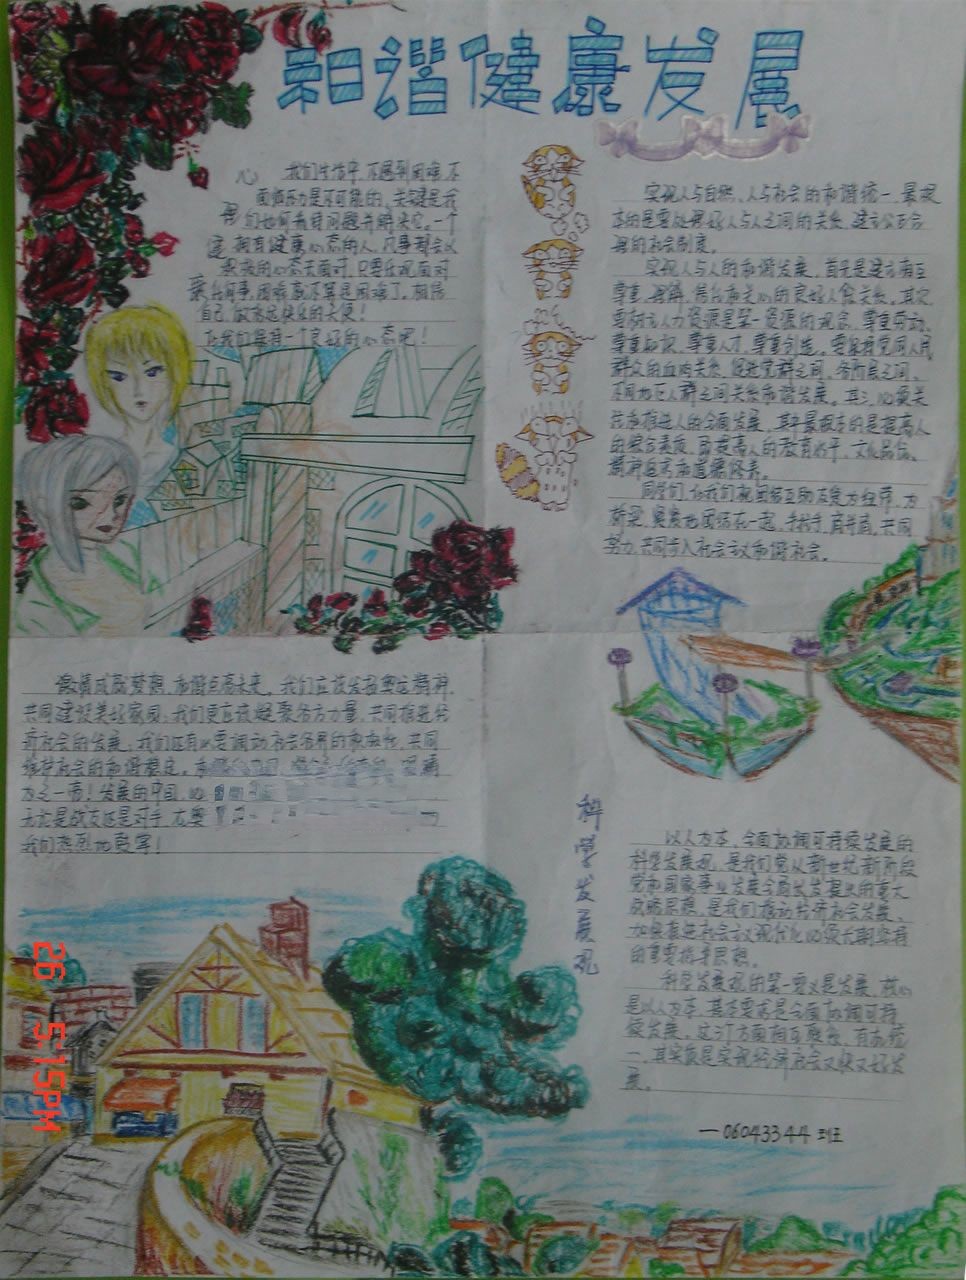 和谐健康发展
我们生活中,不遇到困难,不
面临压力是不可能的,关键是我
们如何看待问题并解决它。一个
拥有健康心态的人,凡事都会以
积极的心态去面对,只要乐观面对
任何事,困难就不算是困难了。相信
自己,做永远快乐的天使!
让我们保持一个良好的心态吧!
实现人与自然、人与社会的和谐统一,最根
本的是要处理好人与人之间的关系,建立公正合
理的社会制度。
实现人与人的和谐发展,首先是建立相互
尊重、理解、信任和关心的良好人际关系。其次,
要树立人力资源是第一资源的观念,尊重劳动、
尊重知识、尊重人才、尊重创造。要保持党同人民
群众的血肉关系,促进党群之间、各阶层之间、
不同地区人群之间关系和谐发展。其三,必须关
注和推进人的全面发展,其中最根本的是提高人
的综合素质,即提高人的教育水平、文化品位、
精神追求和道德修养。
同学们,让我们视团结互助友爱为纽带,为
桥梁,紧紧地团结在一起,手挽手,肩并肩,共同
努力,共同步入社会主义和谐社会。
激情成就梦想,和谐点亮未来。我们应该发扬奥运精神,
共同建设美好家园;我们更应该凝聚各方力量,共同推进经
济社会的发展;我们还有必要调动社会各界的积极性,共同
维护社会的和谐稳定。
为之一带!发展的中国,必
无论是战友还是对手,在奥
我们热烈地鼓掌!
科学发展观
以人为本,全面协调可持续发展的
科学发展观,是我们党从新世纪新阶段
党和国家事业发展全局出发提出的重大
战略思想,是我们推动经济社会发展、
加快推进社会主义现代化必须长期坚持
的重要指导思想。
科学发展观的第一要义是发展,核心
是以人为本,基本要求是全面协调可持
续发展,这几方面相互联系、有机统
一,其实质是实现经济社会又快又好发
展。
—06043344班
26 5:15PM